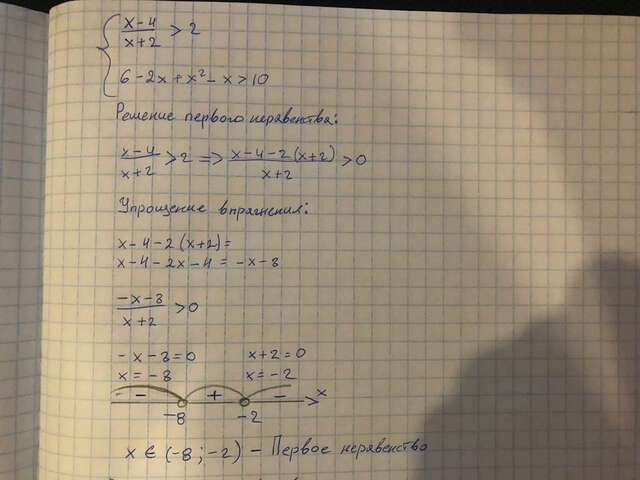 x-4/x+2 > 2
6-2x+x²-x>10
Решение первого неравенства:
x-4/x+2 > 2 => x-4-2(x+2)/x+2 > 0
Упрощение впражения:
x-4-2(x+2)=
x-4-2x-4 = -x-8
-x-8/x+2 > 0
-x-8=0 x+2=0
x=-8 x=-2
- + - x
-8 -2
x ∈ (-8; -2) - Первое неравенство